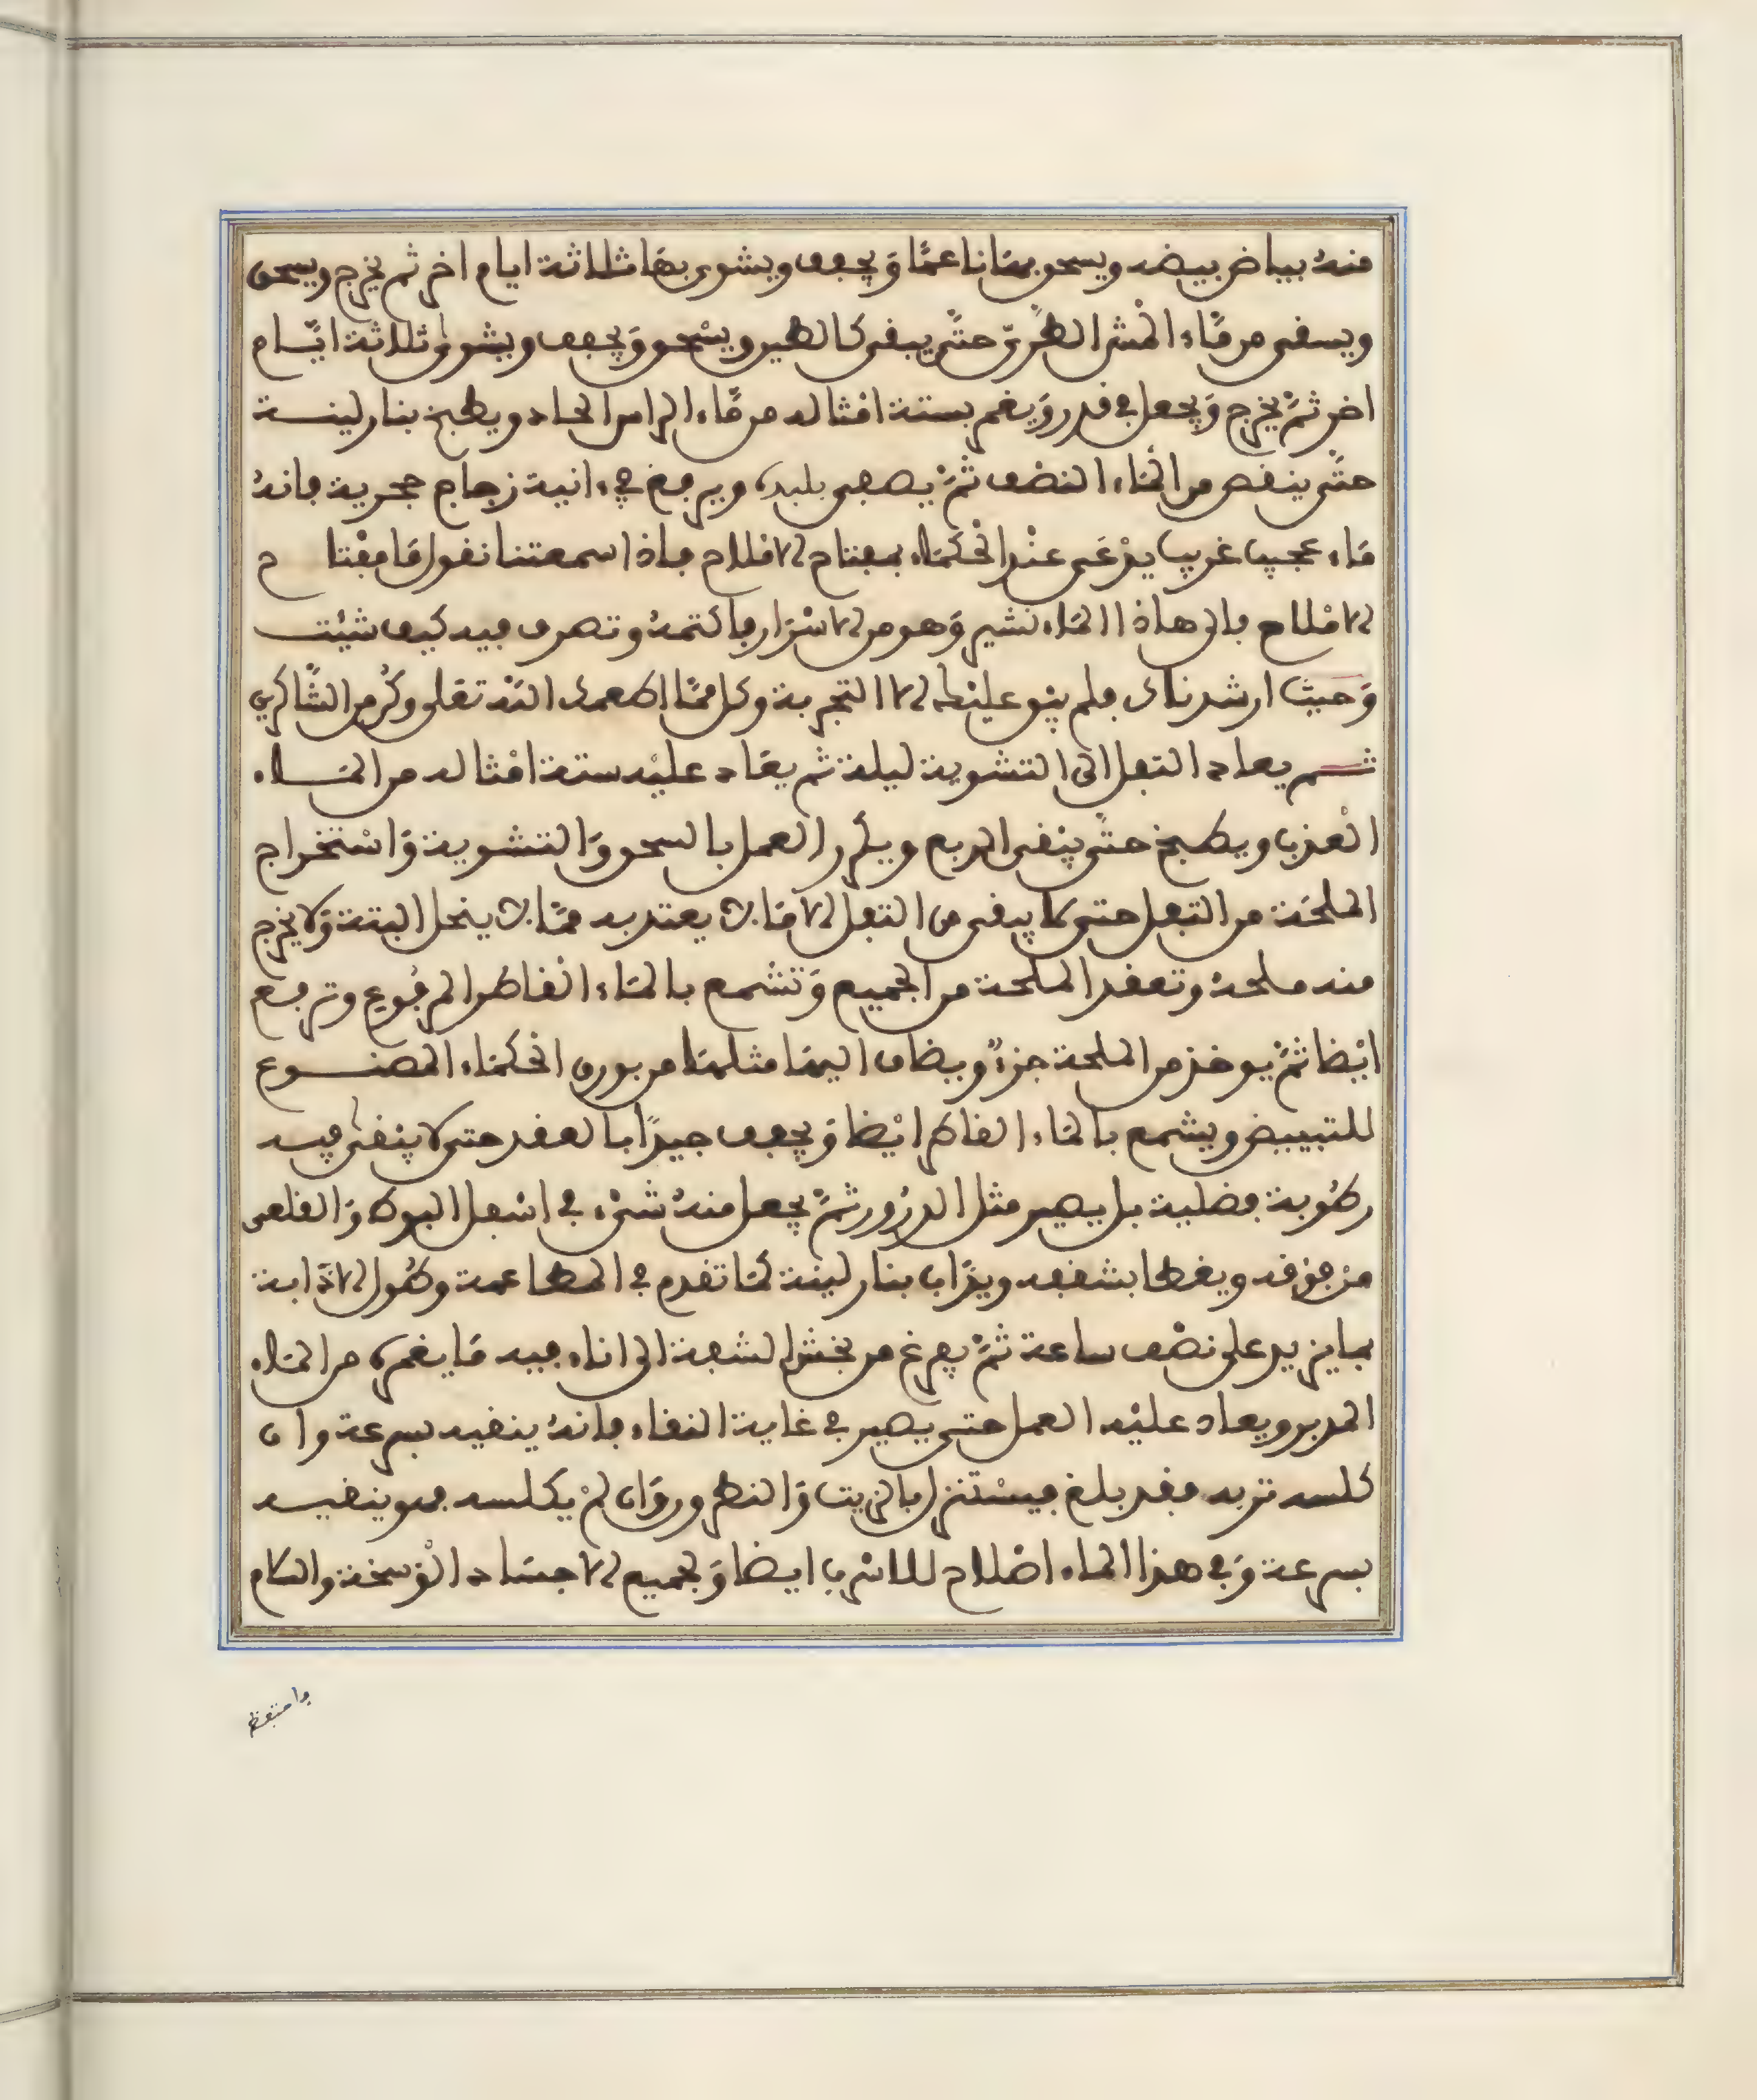 منهُ ببياض بيضه ويسحق بهَا ناعمًا وَيجفف ويشوى بهَا ثلاثة ايام اخر ثم يخرج ويسحق
ويسقى من مَّاء المشا الطرىّ حتَّى يبقى كالطين ويسْحق وَيجفف ويشوى ثلاثة ايَّام
اخر ثمَّ يخرج وَيجعل في قدر وَيغمر بستة امْثاله من مَّاء الراس الحاد ويطبخ بنار لينة
حتَّى ينقص من المَاء النصْف ثمَّ يصفى بلبد ويرفع في ءانية زجاج حجرية فانهُ
مَاء عجيب غريب يدْعَى عنْد الحْكمَاء بمفتاح الافلاح فاذا سمعتنا نقول مَا مفْتاح
الافْلاح فالى هاذا المَاء نشير وَهو من الاسْرَار فاكتمهُ وتصرف فيه كيف شيْت
وَحَيث ارشدناك فلم يبْق عليْك الا التجربة وكل ممَّا اطعمك اللَّه تعَلى وكُن من الشَّاكرين
ثم يعاد التفل الى التشوية ليلة ثم يعَاد عليْه ستة امْثاله من المَاء
العْذب ويطبخ حتَّى يبْقى الربع ويكرر العمل بالسحق وَالتشوية وَاسْتخراج
الملحَة من التفل حتى لا يبقى من التفل الا مَا لا يعتد به ممَّا لا ينحل البتة وَلا يخرج
منه ملحة وتعقد الملْحة من الجميع وَتشْمع بالمَاء القْاطر المرفُوع وترفع
ايْضا ثمَّ يوخذ من الملحة جزءٌ ويضاف اليهَا مثلهَا من بورق الحْكمَاء المصنوع
للتبييض ويشمع بالمَاء القاطر ايْضا وَيجفف جيدًا بالعقد حتى لا يبْقى فيه
رطُوبة فضلية بل يصير مثل الدرُور ثمَّ يجعل منهُ شىْء في اسْفل البوط وَالقلعى
منْ فوقه ويغطا بشقفه ويذَاب بنار لينة كمَا تقدم في المطاعمة وطُول الاذَابة
فيما يزيد على نصْف ساعة ثمَّ يفرغ من بخش الشقفة الى اناء فيه مَا يغمره من المَاء
المدبر ويعاد عليْه العمل حتى يصير في غاية النقاء فانهُ ينقيه بسرعة وان
كلسه تربه فقد بلغ فيسْتنزل بالزيت وَالنطرون وَان لمْ يكلسه فهو ينقيه
بسرعة وَفي هذا الماء اصْلاح للاسْرب ايضا وَلجميع الاجسَاد الوَسخة والكلام